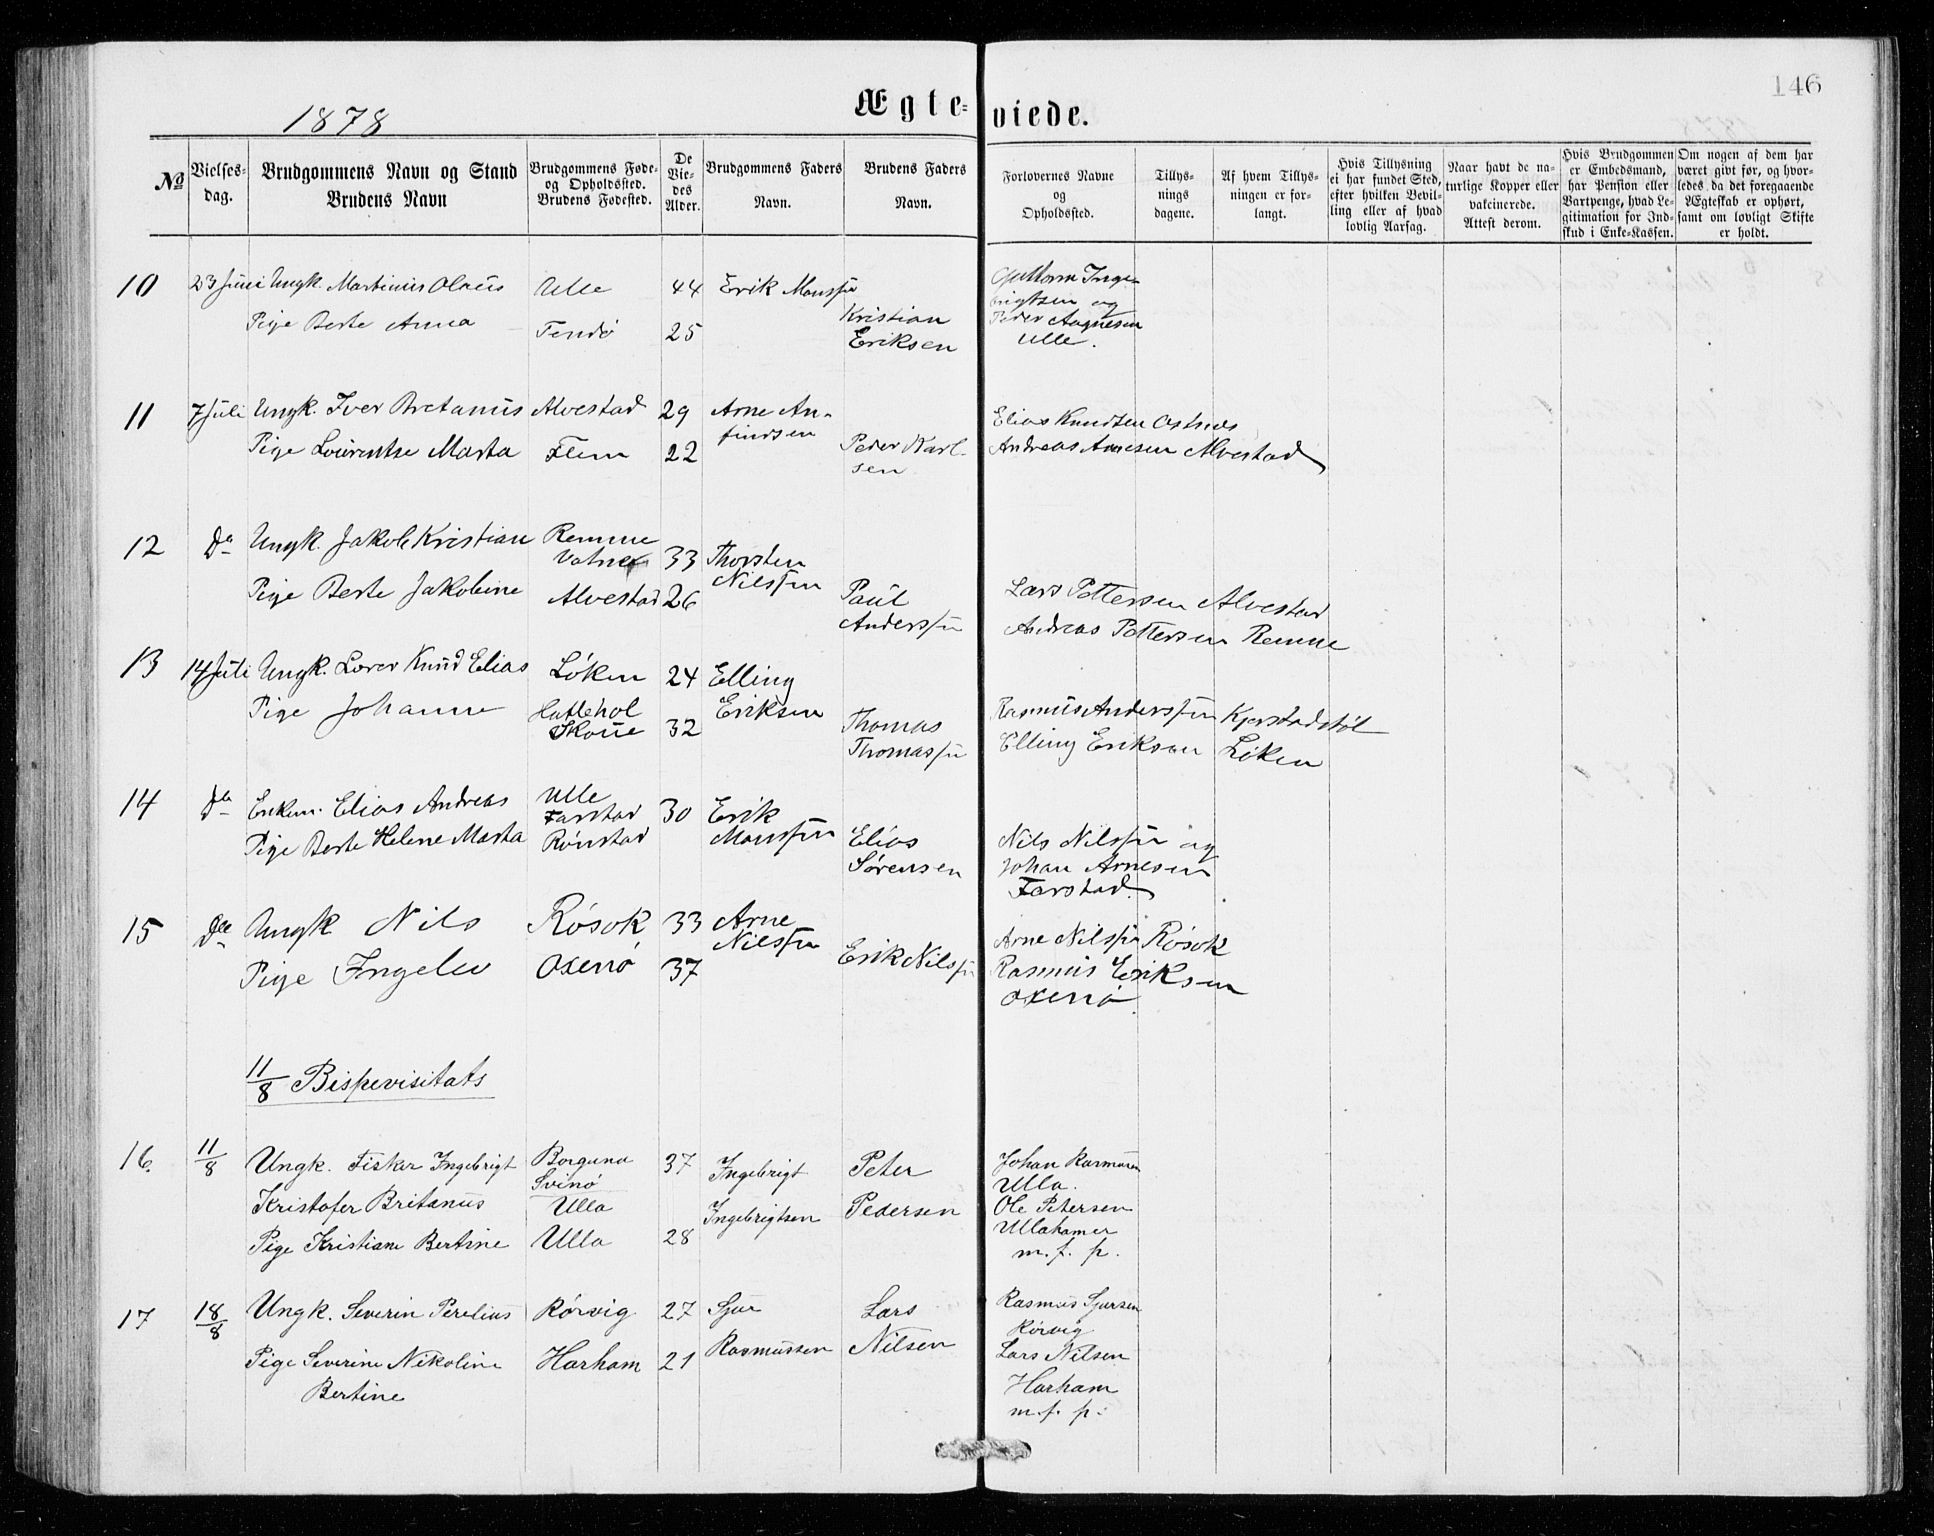 146
1878
Ægteviede.
No
Vielsesdag.
Brudgommens Navn og Stand
Brudens Navn
Brudgommens Føde- og Opholdssted.
Brudens Fødested.
De Viedes Alder.
Brudgommens Faders Navn.
Brudens Faders Navn.
Forlovernes Navne og Opholdssted.
Tillysningsdagene.
Af hvem Tillysningen er forlangt.
Hvis Tillysning ei har fundet Sted, efter hvilken Bevilling eller af hvad lovlig Aarsag.
Naar havt de naturlige Kopper eller vakcinerede. Attest derom.
Hvis Brudgommen er Embedsmand, har Pension eller Vartpenge, hvad Legitimation for Indskud i Enke-Kassen.
Om nogen af dem har været givt før, og hvorledes da det foregaaende Ægteskab er ophørt, samt om lovligt Skifte er holdt.
10 23 Juni Ungk. Martinius Olaus Ulle 44 Erik Monssøn
Pige Berte Anna Fendø 25 Kristian Eriksen
Guttorm Ingebrigtsen og
Peder Aagnesen
Ulle.
11 7 Juli Ungk. Iver Bretanus Alvestad 29 Arne Anfindsen
Pige Lourentse Marta Flem 22 Peder Karlsen
Elias Knudsen Astnes
Andreas Arnesen Alvestad
12 Do Ungk. Jakob Kristian Remme Vatne 33 Thorsten Nilssøn
Pige Berte Jakobine Alvestad 26 Paul Anderssøn
Lars Pettersen Alvestad
Andreas Pettersen Remme
13 14 Juli Ungk. Lærer Knud Elias Løken 24 Elling Eriksen
Pige Johanne Hatlehol Skoue 32 Thomas Thomassøn
Rasmus Anderssøn Kjerstadstøl
Elling Eriksen Løken
14 Do Enkem. Elias Andreas Ulle Farstad 30 Erik Monssøn
Pige Berte Helene Marta Rønstad Elias Sørensen
Nils Nilssøn og
Johan Arnesen
Farstad.
15 Do Ungk Nils Røsok 33 Arne Nilssøn
Pige Ingelev Oxenø 37 Erik Nilssøn
Arne Nilssøn Røsok
Rasmus Eriksen
Oxenø.
11/8 Bispevisitats
16. 11/8 Ungk. Fisker Ingebrigt Borgund Svinø 37 Ingebrigt Peter
Kristofer Britanus Ulla Ingebrigtsen Pedersen
Pige Kristiane Bertine Ulla 28
Johan Rasmusen
Ulla.
Ole Petersen
Ullahamer
m. f. p.
17 18/8 Ungk. Severin Perelius Rørvig 27 Sjur Lars
Pige Severine Nikoline Harham 21 Rasmussen Nilsen
Bertine
Rasmus Sjursen
Rørvig
Lars Nilsen
Harham
m. f. p.